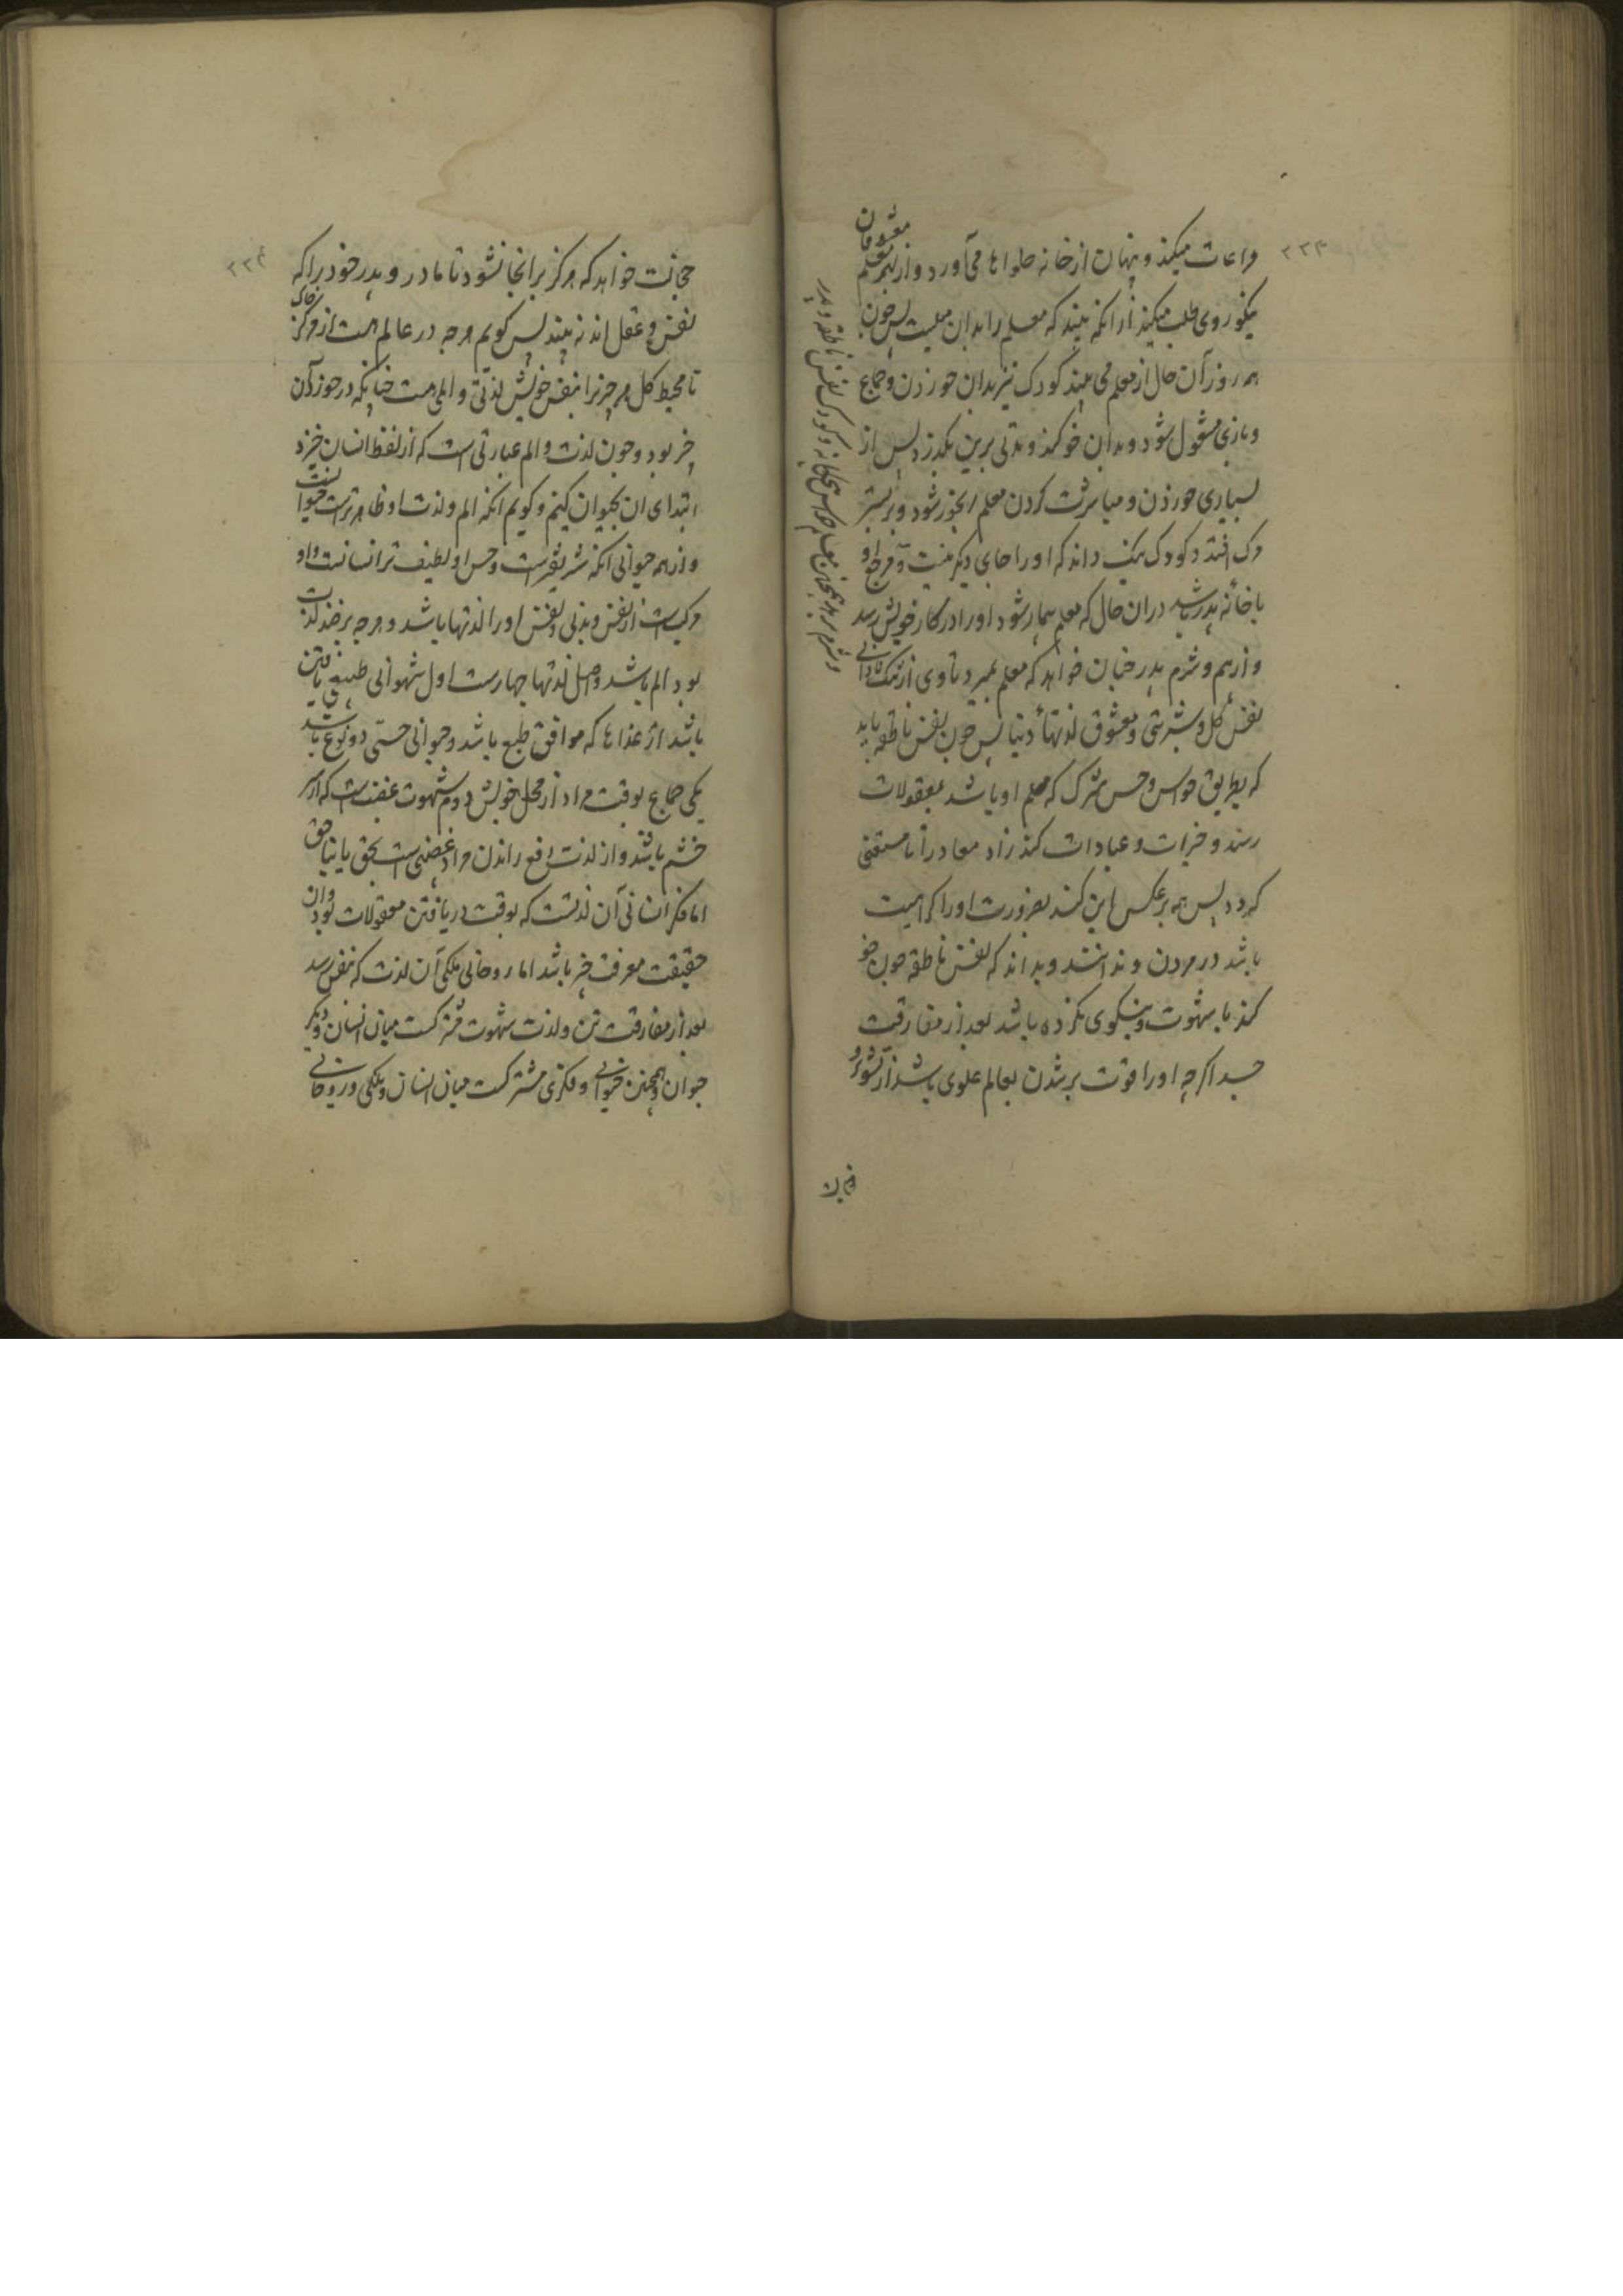 ۲۲۳
مراعات میکند و پنهان از خانه حلواها می‌آورد و از بهر معلم معشوقان
نیکو روی طلب میکند از انکه بیند که معلم را بدان میلیست پس چون
همه روز آن حال از معلم می بیند کودک نیز بدان خوردن و جماع
و بازی مشغول شود و بدان خو کند و مدتی برین بگذرد پس از
بسیاری خوردن و مباشرت کردن معلم رنجور شود و بر بستر
مرک افتد و کودک نیک داند که او را جای دیگر نیست و مرجع او
با خانه پدر باشد دران حال که معلم بیمار شود او را در کار خویش رسد
و از بیم و شرم پدر چنان خواهد که معلم نمیرد تا وی از
نفس کل و معشوق لذتهاء دنیا پس چون نفس ناطقه باید
که بطریق حواس و حس مشترک که معلم او باشد بمعقولات
رسد و خیرات و عبادات کند زاد معاد را تا مستغنی
کردد پس همه برعکس این کند بضرورت او را کراهیت
باشد در مردن و نداند که نفس ناطقه چون خو
کند با شهوت و نیکوی نکرده باشد بعد از مفارقت
جسد اگرچه او را قوت برشدن بعالم علوی باشد از
۲۲٤
خجالت خواهد که هرکز بر انجا نشود تا مادر و پدر خود را که
نفس و عقل اند نه بیند پس کویم هرچه در عالم هست از مرکز خاک
تا محیط کل هر چیز را بنفس خویش لذتی و المی هست چنانکه در خور آن
چیز بود و چون لذت و الم عبارتی است که از لفظ انسان خیزد
ابتدای ان بحیوان کنیم و کویم انکه الم و لذت او ظاهرترست حیوانست
و از همه حیوانی انکه شریفترست و حس او لطیف تر انسانست و او
مرکبست از نفس و بدنی و نفس او را لذتها باشد و هرچه بر ضد لذت
بود الم باشد و اصل لذتها چهارست اول شهوانی طبیعی یافتن
باشد از غذاها که موافق طبع باشد و حیوانی حسی دو نوع باشد
یکی جماع بوقت مراد از محل خویش دوم شهوت غضبست که از سر
خشم باشد و از لذت دفع راندن مراد غضبی است بحق یا بناحق
اما فکر انسانی آن لذتست که بوقت دریافتن معقولات بود و ان
حقیقت معرفت چیز باشد اما روحانی ملکی آن لذت که بنفس رسد
بعد از مفارقت تن و لذت شهوت مشترکست میان انسان و دیگر
حیوان و همچنین حیوانی و فکری مشترکست میان انسان و ملکی و روحانی